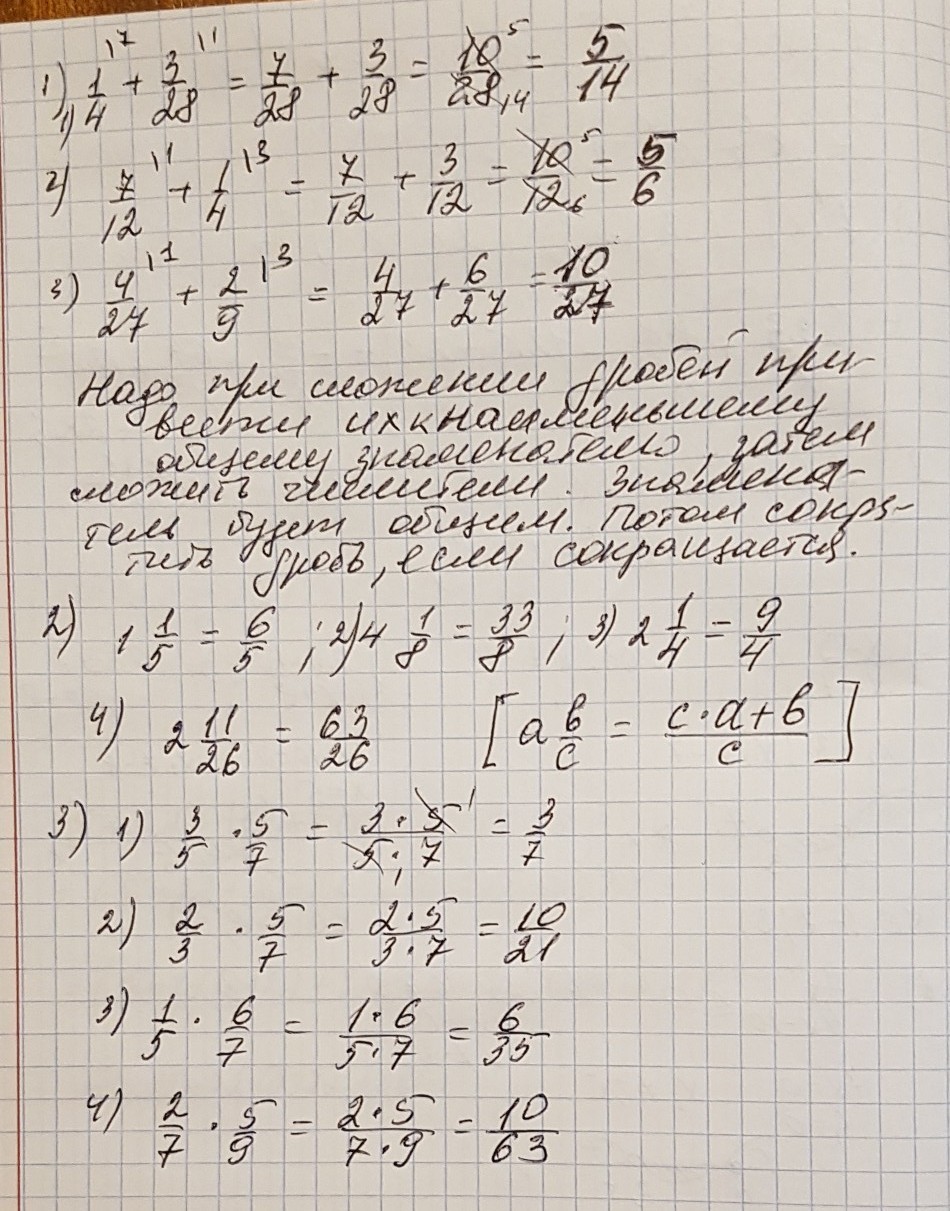 1) 1) 1/4 |7 + 3/28 |1 = 7/28 + 3/28 = 10/28 5 14 = 5/14
2) 7/12 |1 + 1/4 |3 = 7/12 + 3/12 = 10/12 5 6 = 5/6
3) 4/27 |1 + 2/9 |3 = 4/27 + 6/27 = 10/27
Надо при сложении дробей при-
вести их к наименьшему
общему знаменателю, затем
сложить числители. Знамена-
тель будет общим. Потом сокра-
тить дробь, если сокращается.
2) 1 1/5 = 6/5 ; 2) 4 1/8 = 33/8 ; 3) 2 1/4 = 9/4
4) 2 11/26 = 63/26 [a b/c = c·a+b/c]
3) 1) 3/5 · 5/7 = 3·5/5·7 1 1 = 3/7
2) 2/3 · 5/7 = 2·5/3·7 = 10/21
3) 1/5 · 6/7 = 1·6/5·7 = 6/35
4) 2/7 · 5/9 = 2·5/7·9 = 10/63